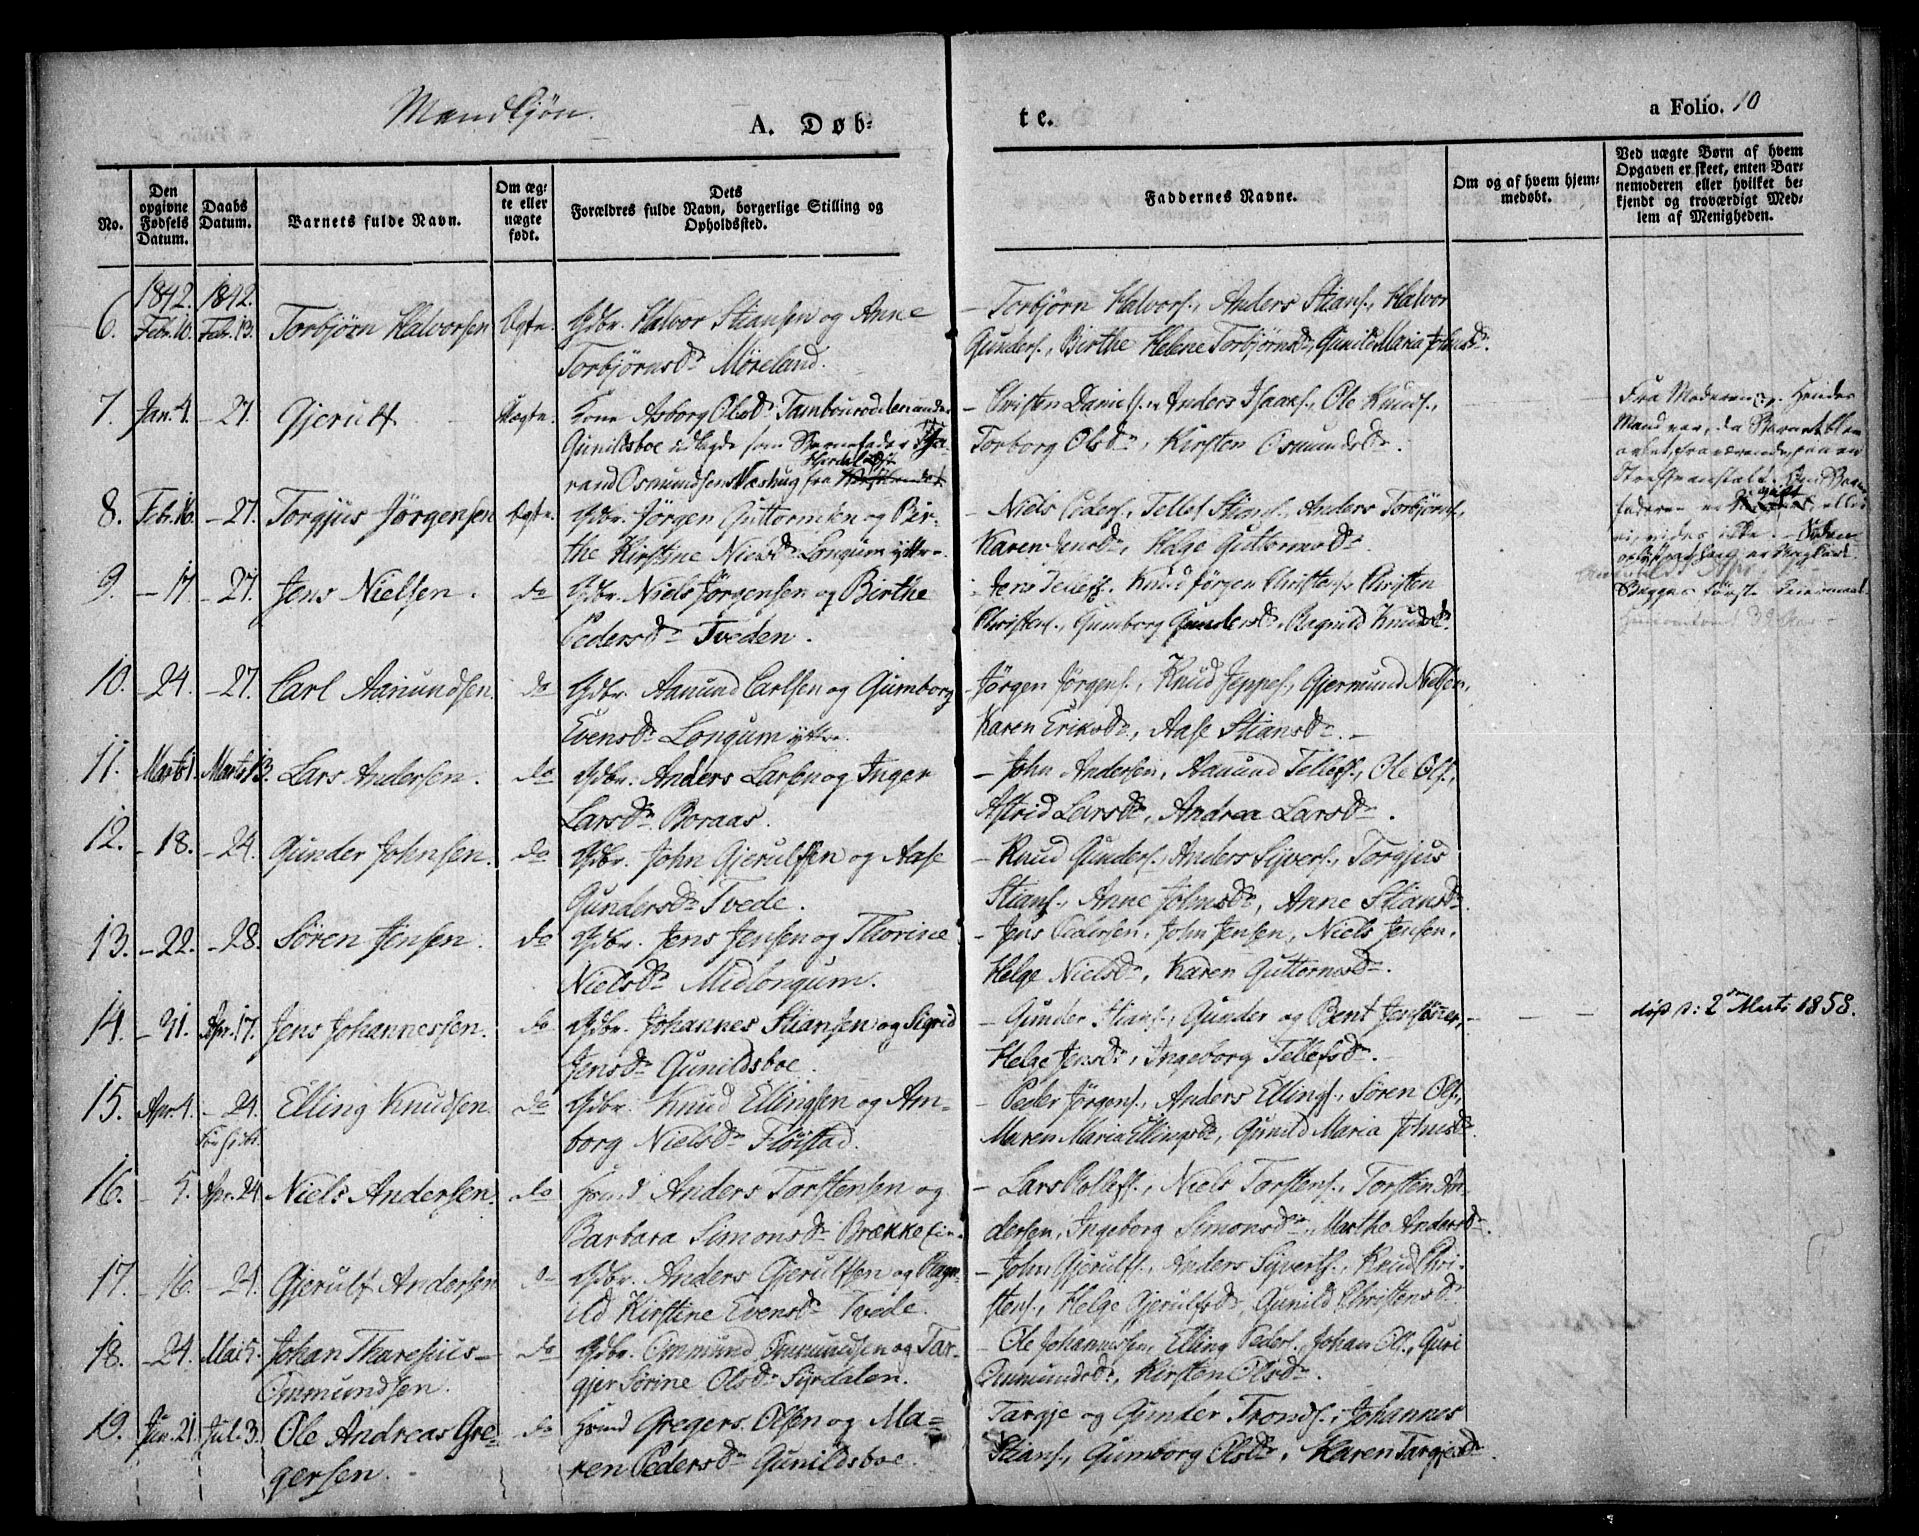 Mandkjøn.
A. Døb-
te.
a Folio. 10
No.
Den opgivne Fødsels Datum.
Daabs Datum.
Barnets fulde Navn.
Om ægte eller uægte født.
Dets
Forældres fulde Navn, borgerlige Stilling og
Opholdssted.
Faddernes Navne.
Om og af hvem hjemmedøbt.
Ved uægte Børn af hvem
Opgaven er skeet, enten Bar-
nemoderen eller hvilket be-
kjendt og troværdigt Med-
lem af Menigheden.
1842. 1842.
6. Febr. 10. Febr. 13. Torbjörn Halvorsen Ægte. Gdbr. Halvor Stiansen og Anne
Torbjörnsd. Möreland.
- Torbjörn Halvors., Anders Stians., Halvor
Gunders., Birthe Helene Torbjörnsd., Gunild Maria Johnsd.
7. Jan. 4. - 27. Gjerulf Uægte. Kone Asborg Olsd. Tambourodden under
Gunildsboe udlagde som Barnefader
rand Osmundsens fra
- Christen Daniels., Anders Isaaks., Ole Knuds.,
Torborg Olsd., Kirsten Osmundsd.
Fra Moderen. Hendes
Mand var, da Barnet blev
avlet, fraværende, paa en
Strafanstalt.
8. Febr. 16. - 27. Torgjus Jörgensen Ægte. Gdbr. Jörgen Guttormsen og Bir-
the Kirstine Nielsd. Longum yttre.
- Niels Peders., Tellef Stians., Anders Torbjörns.,
Karen Jensd., Helge Guttormsd.
9. - 17. - 27. Jens Nielsen. do Gdbr. Niels Jörgensen og Birthe
Pedersd. Tveden.
- Jens Tellefs. Knud Jörgen Christens. Christen
Christens., Gumborg Gundersd., Ragnild Knudsd.
10. - 24. - 27. Carl Aanundsen. do Gdbr. Aanund Carlsen og Gumborg
Evensd. Longum yttre.
Jørgen Jørgens., Knud Jeppes., Gjermund Nielsen,
Karen Eriksd., Aase Stiansd.
11. Marts 1. Marts 13. Lars Andersen. do Gdbr. Anders Larsen og Inger
Larsd. Boraas.
- John Andersen, Aanund Tellefs., Ole Ols.,
Astrid Larsd., Andrea Larsd.
12. - 18. - 24. Gunder Johnsen. do Gdbr. John Gjerulfsen og Aase
Gundersd. Tvede.
- Knud Gunders., Anders Syvers., Torgjus
Stians., Anne Johnsd., Anne Stiansd.
13. - 22. - 28. Sören Jensen. do Gdbr. Jens Jensen og Thorine
Nielsd. Midlongum.
- Jens Pedersen, John Jensen, Niels Jensen,
Helge Nielsd., Karen Guttormsd.
14. - 31. Apr. 17. Jens Johannessen. do Gdbr. Johannes Stiansen og Sigrid
Jensd. Gunildsboe.
- Gunder Stians., Gunder og Bent Jensöner,
Helge Jensd., Ingeborg Tellefsd.
døbt d: 2den Marts 1858.
15. Apr. 4. - 24. Elling Knudsen. do Gdbr. Knud Ellingsen og Am-
borg Nielsd. Fløistad.
- Peder Jörgens., Anders Ellings., Sören Ols.,
Maren Maria Ellingsd., Gunild Maria Johnsd.
16. - 5. Apr. 24 Niels Andersen. do Huusmd Anders Torstensen og
Barbara Simonsd. Brække
- Lars Rollefs., Niels Torstens., Torsten An-
dersen, Ingeborg Simonsd., Marthe Andersd.
17. - 16. - 24. Gjerulf Andersen do Gdbr. Anders Gjerulfsen og Ragn-
ild Kirstine Evensd. Tvede.
- John Gjerulfs., Anders Syverts., Knud Chri-
stens., Helge Gjerulfsd., Gunild Christensd.
18. - 24. Mai 5. Johan Tharesius
Ommundsen. do Gdbr. Ommund Ommundsen og Tar-
gjer Sörine Olsd. Syrdalen.
- Ole Johannessen, Elling Peders., Johan Ols., Guri
Ommundsd., Kirsten Olsd.
19. Jun. 21. Jul. 3. Ole Andreas Gre-
gersen. do Huusmd Gregers Olsen og Ma-
ren Pedersd. Gunildsboe.
Targje og Gunder Tronds., Johannes
Stians., Gumborg Olsd., Karen Targjesd.